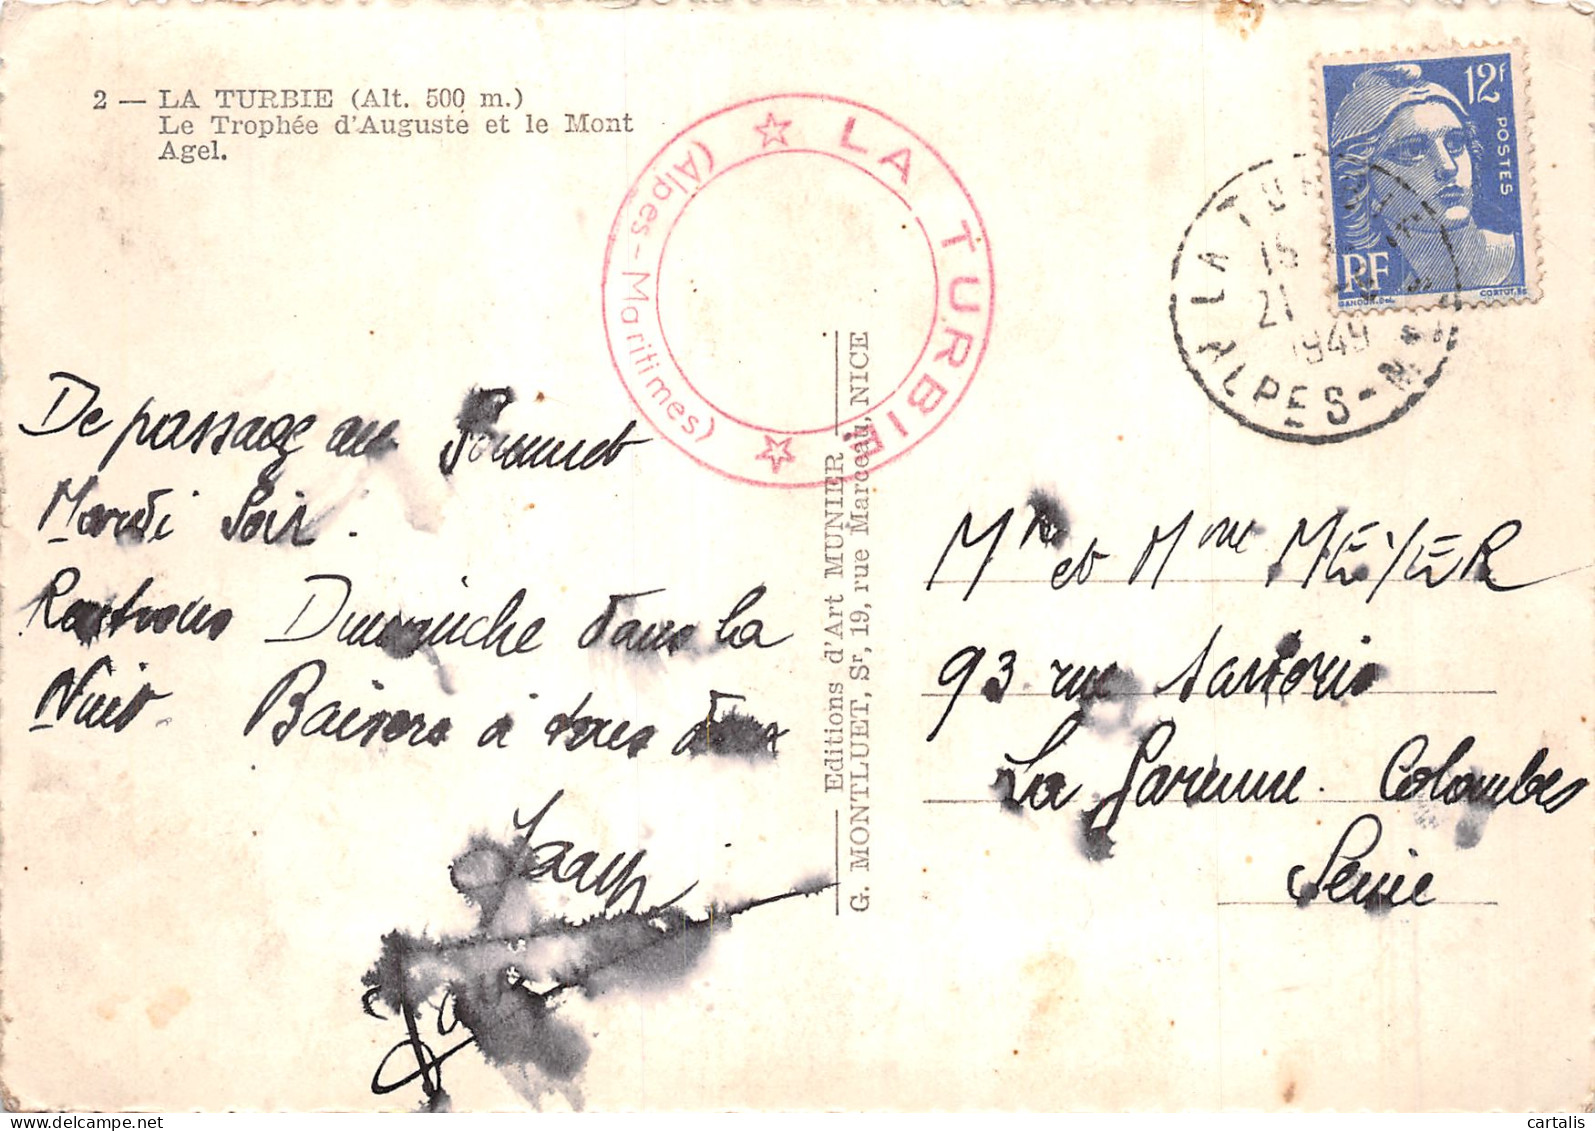 2 — LA TURBIE (Alt. 500 m.)
Le Trophée d'Auguste et le Mont
Agel.
LA TURBIE
(Alpes-Maritimes)
12f
POSTES
RF
GANDON.Del.
CORTOT.Sc
LA TURBIE
21
1949
ALPES-M
De passage au
Mardi Soir.
Rentrons Dimanche dans la
Nuit. Baisers à tous deux
Editions d'Art MUNIER
G. MONTLUET, Sr, 19, rue Marceau, NICE
Mr et Mme MEYER
93 rue Sartoris
La Garenne. Colombes
Seine
cartalis